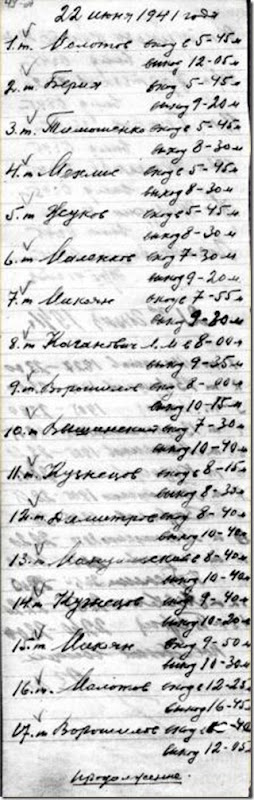 22 июня 1941 года
1. т. Молотов вход в 5-45м
выход 12-05м
2. т. Берия вход 5-45м
выход 9-20м
3. т. Тимошенко вход в 5-45м
выход 8-30м
4. т Мехлис вход в 5-45м
выход 8-30м
5. т Жуков вход в 5-45м
выход 8-30м
6. т Маленков вход 7-30м
выход 9-20м
7. т. Микоян вход в 7-55м
выход 9-30м
8. т Каганович Л.М в 8-00м
выход 9-35м
9. т. Ворошилов вход 8-00м
выход 10-15м
10. т Вышинский вход 7-30м
выход 10-40м
11. т. Кузнецов вход в 8-15м
выход 8-30м
12. т Димитров вход 8-40м
выход 10-40м
13. т Мануильский в 8-40м
выход 10-40м
14. т Кузнецов вход 9-40м
выход 10-20м
15. т. Микоян вход 9-50м
выход 10-30м
16. т. Молотов вход в 12-25м
выход 16-45м
17. т Ворошилов вход в
выход 12-05м
продолжение